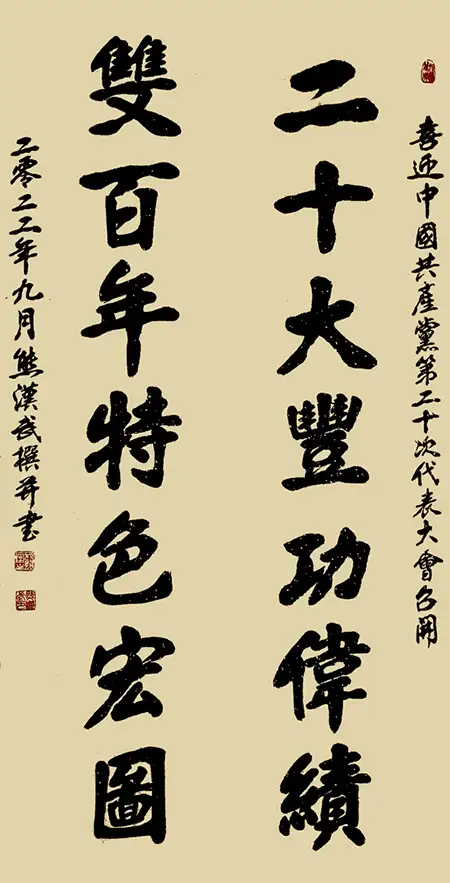 喜迎中國共產黨第二十次代表大會召開
二十大豐功偉績
雙百年特色宏圖
二零二二年九月熊漢武撰并書